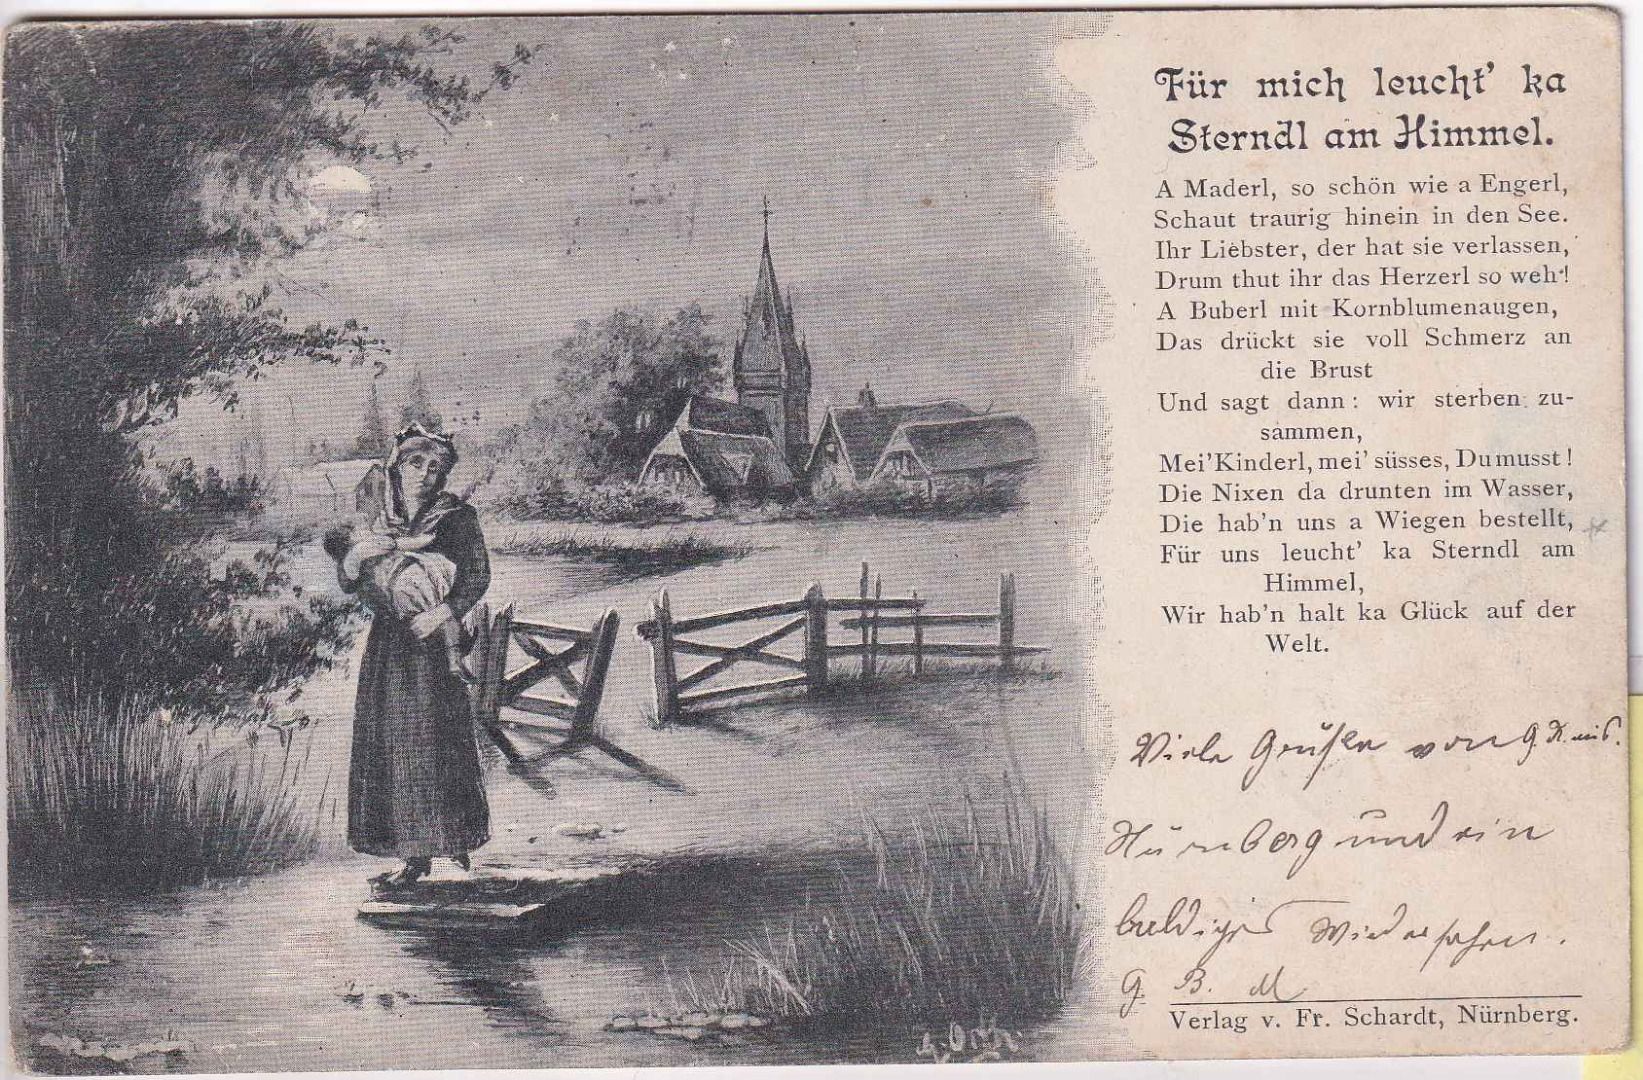 Für mich leucht' ka
Sterndl am Himmel.
A Maderl, so schön wie a Engerl,
Schaut traurig hinein in den See.
Ihr Liebster, der hat sie verlassen,
Drum thut ihr das Herzerl so weh'!
A Buberl mit Kornblumenaugen,
Das drückt sie voll Schmerz an
die Brust
Und sagt dann: wir sterben zu-
sammen,
Mei' Kinderl, mei' süsses, Du musst!
Die Nixen da drunten im Wasser,
Die hab'n uns a Wiegen bestellt,
Für uns leucht' ka Sterndl am
Himmel,
Wir hab'n halt ka Glück auf der
Welt.
Viele Grüße von
Nürnberg und ein
baldiges Wiedersehen.
G. B. M
Verlag v. Fr. Schardt, Nürnberg.